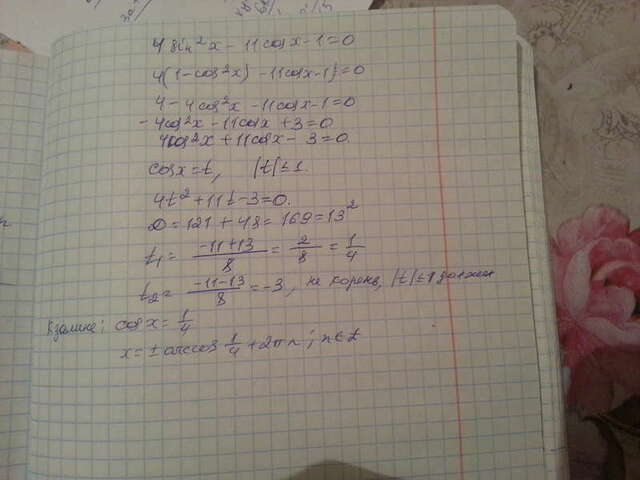 4 sin²x - 11cosx - 1 = 0
4(1 - cos²x) - 11cosx - 1 = 0
4 - 4cos²x - 11cosx - 1 = 0
- 4cos²x - 11cosx + 3 = 0
4cos²x + 11cosx - 3 = 0.
cosx = t, |t| ≤ 1.
4t² + 11t - 3 = 0.
D = 121 + 48 = 169 = 13²
t₁ = (-11+13)/8 = 2/8 = 1/4
t₂ = (-11-13)/8 = -3, не корень, |t| ≤ 1 должен
К замене: cosx = 1/4
x = ± arccos 1/4 + 2πn; n∈Z